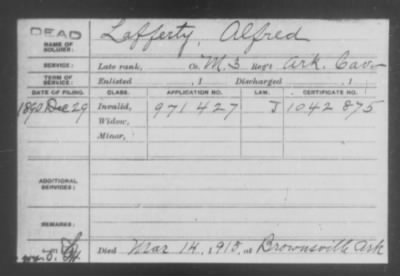 DEAD
NAME OF SOLDIER: Lafferty, Alfred
SERVICE: Late rank, Co. M. 3 Reg't Ark. Cav.
TERM OF SERVICE: Enlisted , 1 Discharged , 1
DATE OF FILING. CLASS. APPLICATION NO. LAW. CERTIFICATE NO.
1890 Dec 29 Invalid, 971427 J 1042875
Widow,
Minor,
ADDITIONAL SERVICES:
REMARKS:
Died Mar 14, 1915, at Brownsville Ark